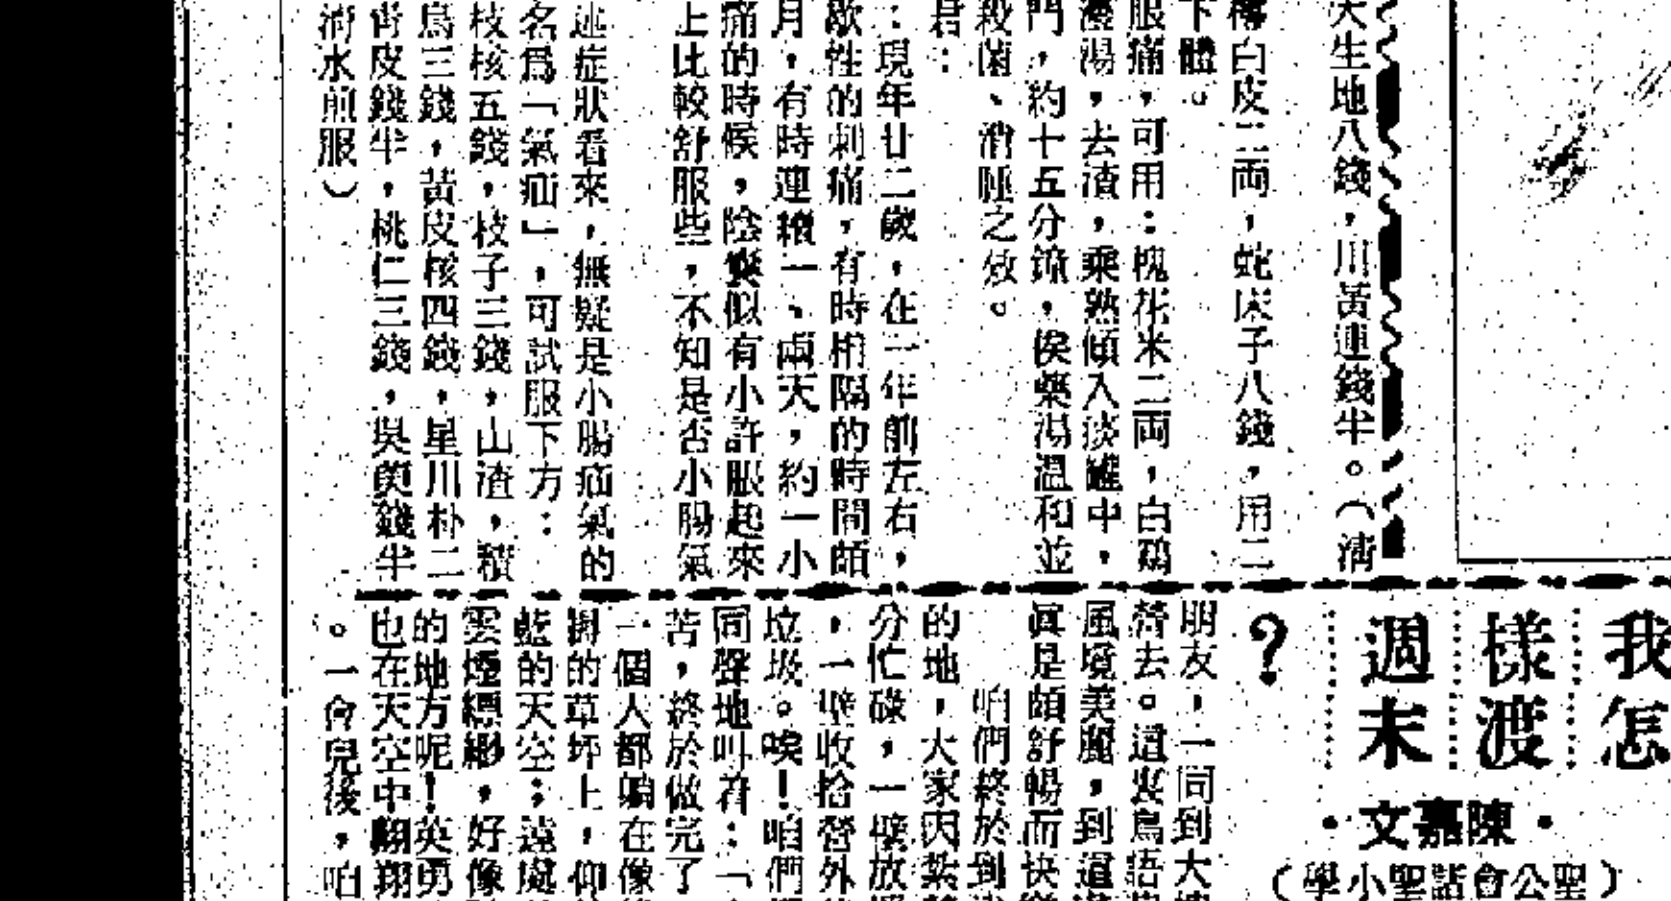 天生地八錢，川黃連錢半。（清
白皮二両，蛇床子八錢，用二
下體。
眼痛，可用：槐花米二両，白鷄
湯，去渣，乘熱傾入淡罐中，
門，約十五分鐘，俟藥湯溫和並
殺菌、消腫之效。
君：
：現年廿二歲，在一年前左右，
歇性的刺痛，有時相隔的時間頗
月，有時連續一、兩天，約一小
痛的時候，陰囊似有小許服起來
上比較舒服些，不知是否小腸氣
述症狀看來，無疑是小腸疝氣的
名爲「氣疝」，可試服下方：
枝核五錢，枝子三錢，山渣，積
烏三錢，黃皮核四錢，星川朴二
青皮錢半，桃仁三錢，吳萸錢半
清水煎服）
我怎
樣渡
週末
？
·陳嘉文·
（聖公會話聖小學
朋友，一同到大
營去。這裏鳥語
風境美麗，到這
眞是頗舒暢而快
咱們終於到
的地，大家因紮
分忙碌，一壁放
，一壁收拾營外
垃圾。唉！咱們
同聲地叫着：「
苦，終於做完了
一個人都躺在像
的草坪上，仰
藍的天空；遠處
雲煙縹緲，好像
的地方呢！英勇
也在天空中翺翔
。一會兒後，咱